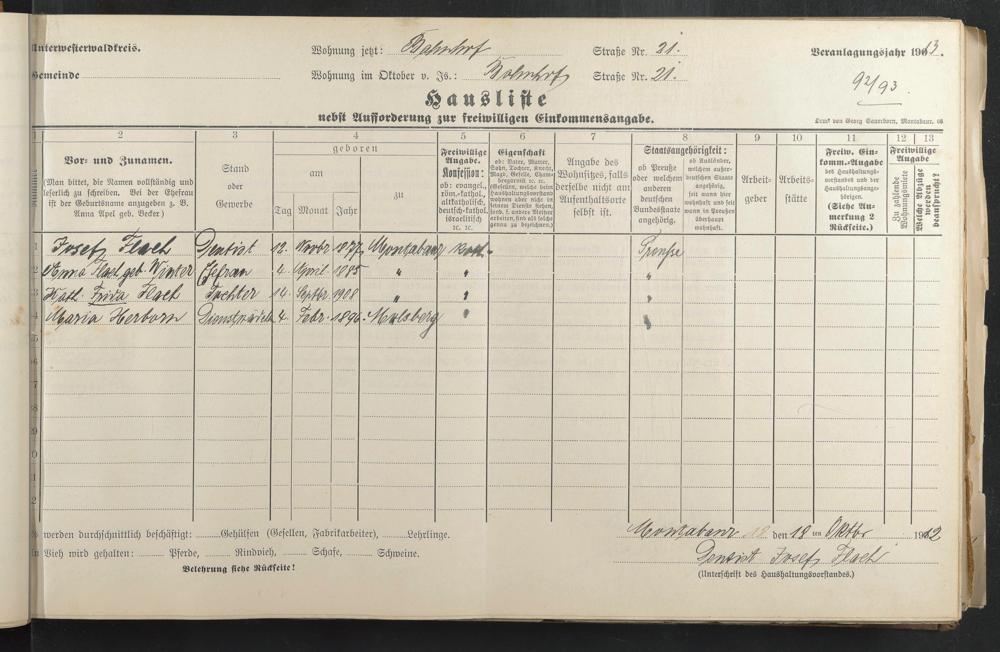 Unterwesterwaldkreis. Wohnung jetzt: Bahnhof Straße Nr. 21. Veranlagungsjahr 1913.
Gemeinde Wohnung im Oktober v. Js.: Bahnhof Straße Nr. 21. 92/93.
Hausliste
nebst Aufforderung zur freiwilligen Einkommensangabe.
Druck von Georg Sauerborn, Montabaur.
1 2 3 4 5 6 7 8 9 10 11 12 13
Nummer
Vor- und Zunamen.
(Man bittet, die Namen vollständig und
leserlich zu schreiben. Bei der Ehefrau
ist der Geburtsname anzugeben z. B.
Anna Apel geb. Becker.)
Stand
oder
Gewerbe
geboren
am
Tag Monat Jahr
zu
Freiwillige
Angabe.
Konfession:
ob: evangel.,
röm.-kathol.,
altkatholisch,
deutsch-kathol.
israelitisch
ꝛc. ꝛc.
Eigenschaft
ob: Vater, Mutter,
Sohn, Tochter, Knecht,
Magd, Geselle, Cham-
Angabe des
Wohnsitzes, falls
derselbe nicht am
Aufenthaltsorte
selbst ist.
Staatsangehörigkeit:
ob Preuße
oder welchem
anderen
deutschen
Bundesstaate
angehörig.
ob Ausländer,
welchem außer-
deutschen Staate
angehörig,
seit wann hier
wohnhaft und seit
wann in Preußen
überhaupt
wohnhaft.
Arbeit-
geber
Arbeits-
stätte
Freiw. Ein-
komm.-Angabe
des Haushaltungs-
vorstandes und der
Haushaltungsange-
hörigen.
(Siehe An-
merkung 2
Rückseite.)
Freiwillige
Angabe
Zu zahlende
Wohnungsmiete
Welche Abzüge
werden
beansprucht?
1 Josef Flach Dentist 12. Novbr. 1877 Montabaur kath. Preuße
2 Anna Flach geb. Winter Ehefrau 4. April 1885 " " "
3 Kath. Frida Flach Tochter 14. Septbr 1908 " " "
4 Maria Herborn Dienstmädch 4. Febr. 1896 Molsberg " "
Es werden durchschnittlich beschäftigt: Gehülfen (Gesellen, Fabrikarbeiter), Lehrlinge.
An Vieh wird gehalten: Pferde, Rindvieh, Schafe, Schweine.
Belehrung siehe Rückseite!
Montabaur den 18 ten Oktbr 1912
Dentist Josef Flach
(Unterschrift des Haushaltungsvorstandes.)